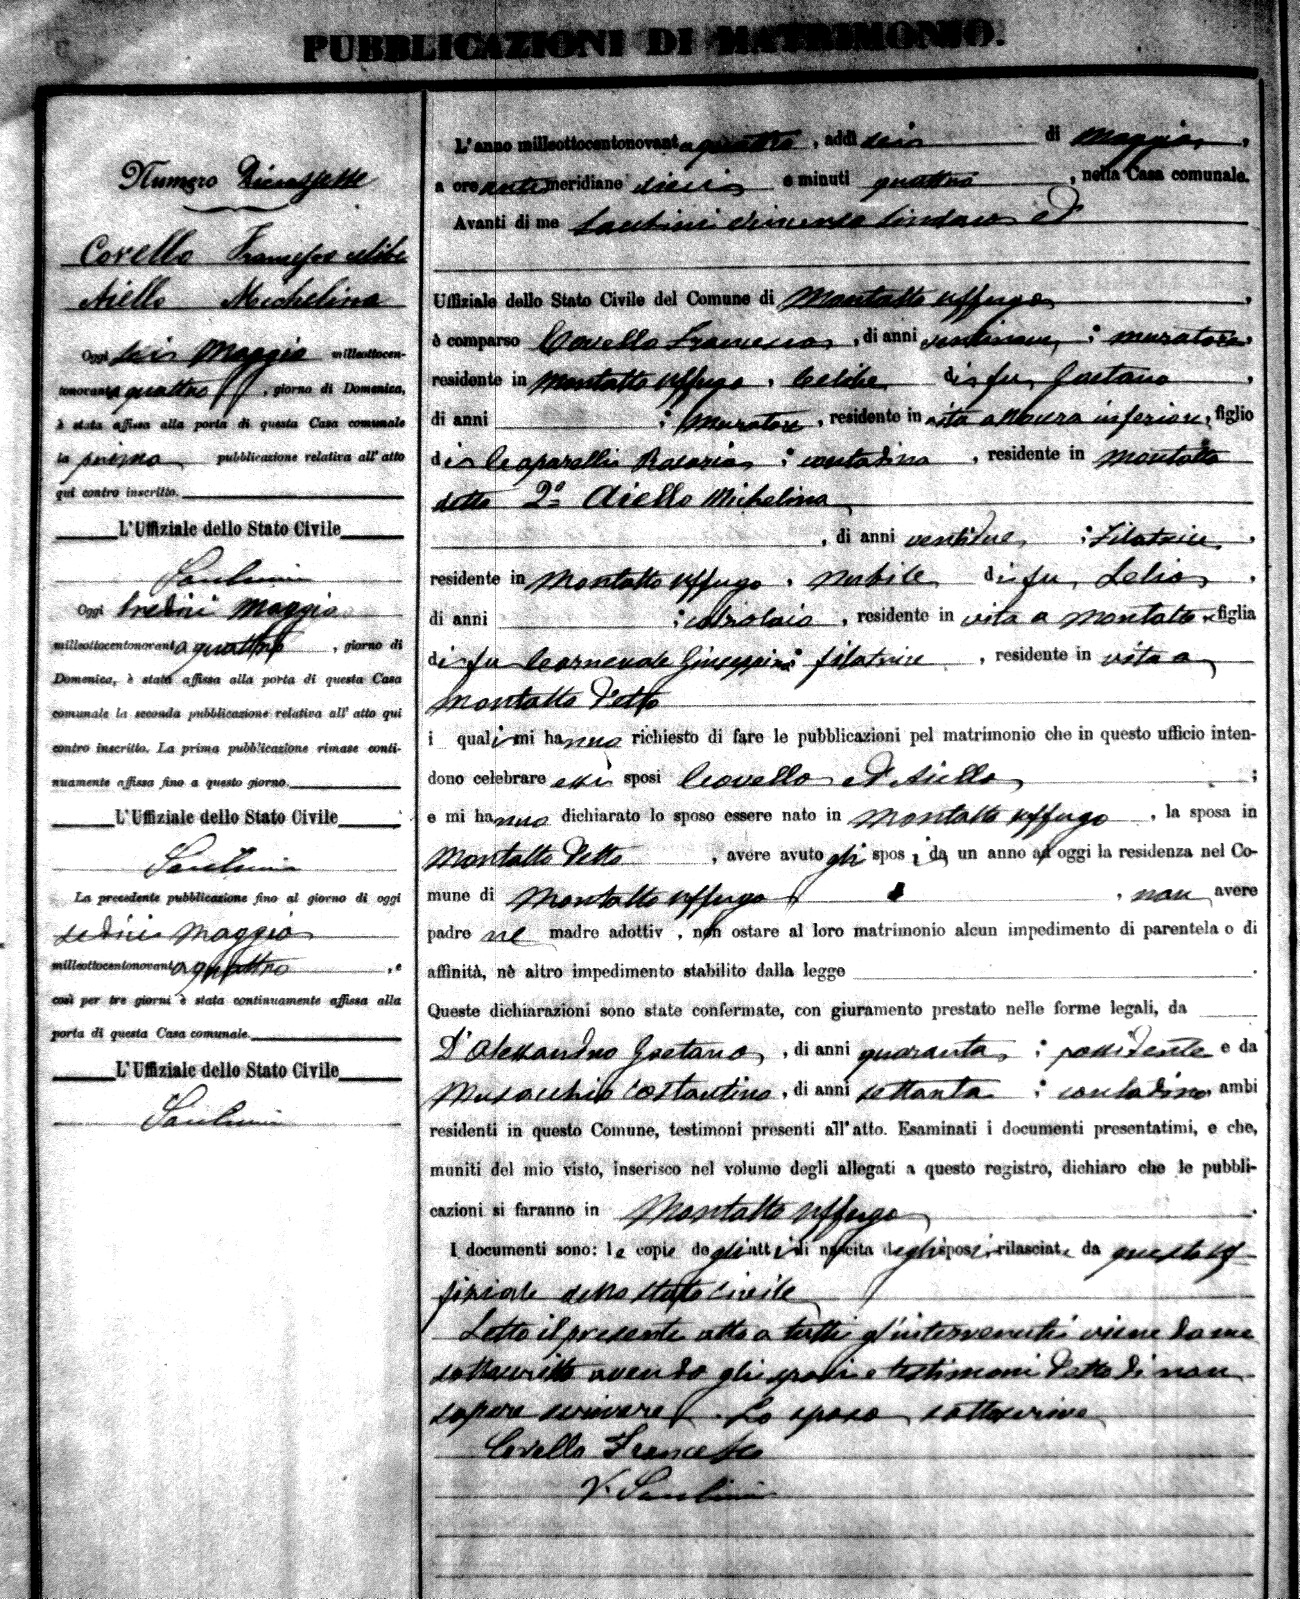 PUBBLICAZIONI DI MATRIMONIO.
Numero Diciassette
Covello Francesco celibe
Aiello Michelina
Oggi sei Maggio milleottocen-
tonovantaquattro, giorno di Domenica,
è stata affissa alla porta di questa Casa comunale
la prima pubblicazione relativa all'atto
qui contro inscritto.
L'Uffiziale dello Stato Civile
Oggi tredici Maggio
milleottocentonovantaquattro, giorno di
Domenica, è stata affissa alla porta di questa Casa
comunale la seconda pubblicazione relativa all'atto qui
contro inscritto. La prima pubblicazione rimase conti-
nuamente affissa fino a questo giorno.
L'Uffiziale dello Stato Civile
La precedente pubblicazione fino al giorno di oggi
sedici Maggio
milleottocentonovantaquattro, e
così per tre giorni è stata continuamente affissa alla
porta di questa Casa comunale.
L'Uffiziale dello Stato Civile
L'anno milleottocentonovantaquattro, addì sei di Maggio,
a ore antimeridiane dieci e minuti quattro, nella Casa comunale.
Avanti di me Vincenzo Sindaco ed
Uffiziale dello Stato Civile del Comune di Montalto Uffugo,
è comparso Covello Francesco, di anni ; muratore,
residente in Montalto Uffugo, Celibe di fu Gaetano,
di anni ; Muratore, residente in vita a inferiore, figlio
di Rosaria ; contadina, residente in Montalto
detto 2° Aiello Michelina
, di anni ventidue, ; Filatrice,
residente in Montalto Uffugo, Nubile di fu Lelio,
di anni ; , residente in vita a Montalto, figlia
di fu Carnevale Giuseppina ; filatrice, residente in vita a
Montalto detto
i quali mi hanno richiesto di fare le pubblicazioni pel matrimonio che in questo ufficio inten-
dono celebrare essi sposi Covello ed Aiello ;
e mi hanno dichiarato lo sposo essere nato in Montalto Uffugo, la sposa in
Montalto detto, avere avuto gli sposi, da un anno ad oggi la residenza nel Co-
mune di Montalto Uffugo, non avere
padre nè madre adottiv , non ostare al loro matrimonio alcun impedimento di parentela o di
affinità, nè altro impedimento stabilito dalla legge.
Queste dichiarazioni sono state confermate, con giuramento prestato nelle forme legali, da
D'Alessandro Gaetano, di anni quaranta ; possidente e da
Musacchio Costantino, di anni settanta ; contadino, ambi
residenti in questo Comune, testimoni presenti all'atto. Esaminati i documenti presentatimi, e che,
muniti del mio visto, inserisco nel volume degli allegati a questo registro, dichiaro che le pubbli-
cazioni si faranno in Montalto Uffugo.
I documenti sono: le copie degli atti di nascita degli sposi, rilasciate da questo Uf-
fiziale dello stato civile
Letto il presente atto a tutti gl'intervenuti viene da me
sottoscritto avendo gli sposi e testimoni detto di non
sapere scrivere. Lo sposo sottoscrive
Covello Francesco